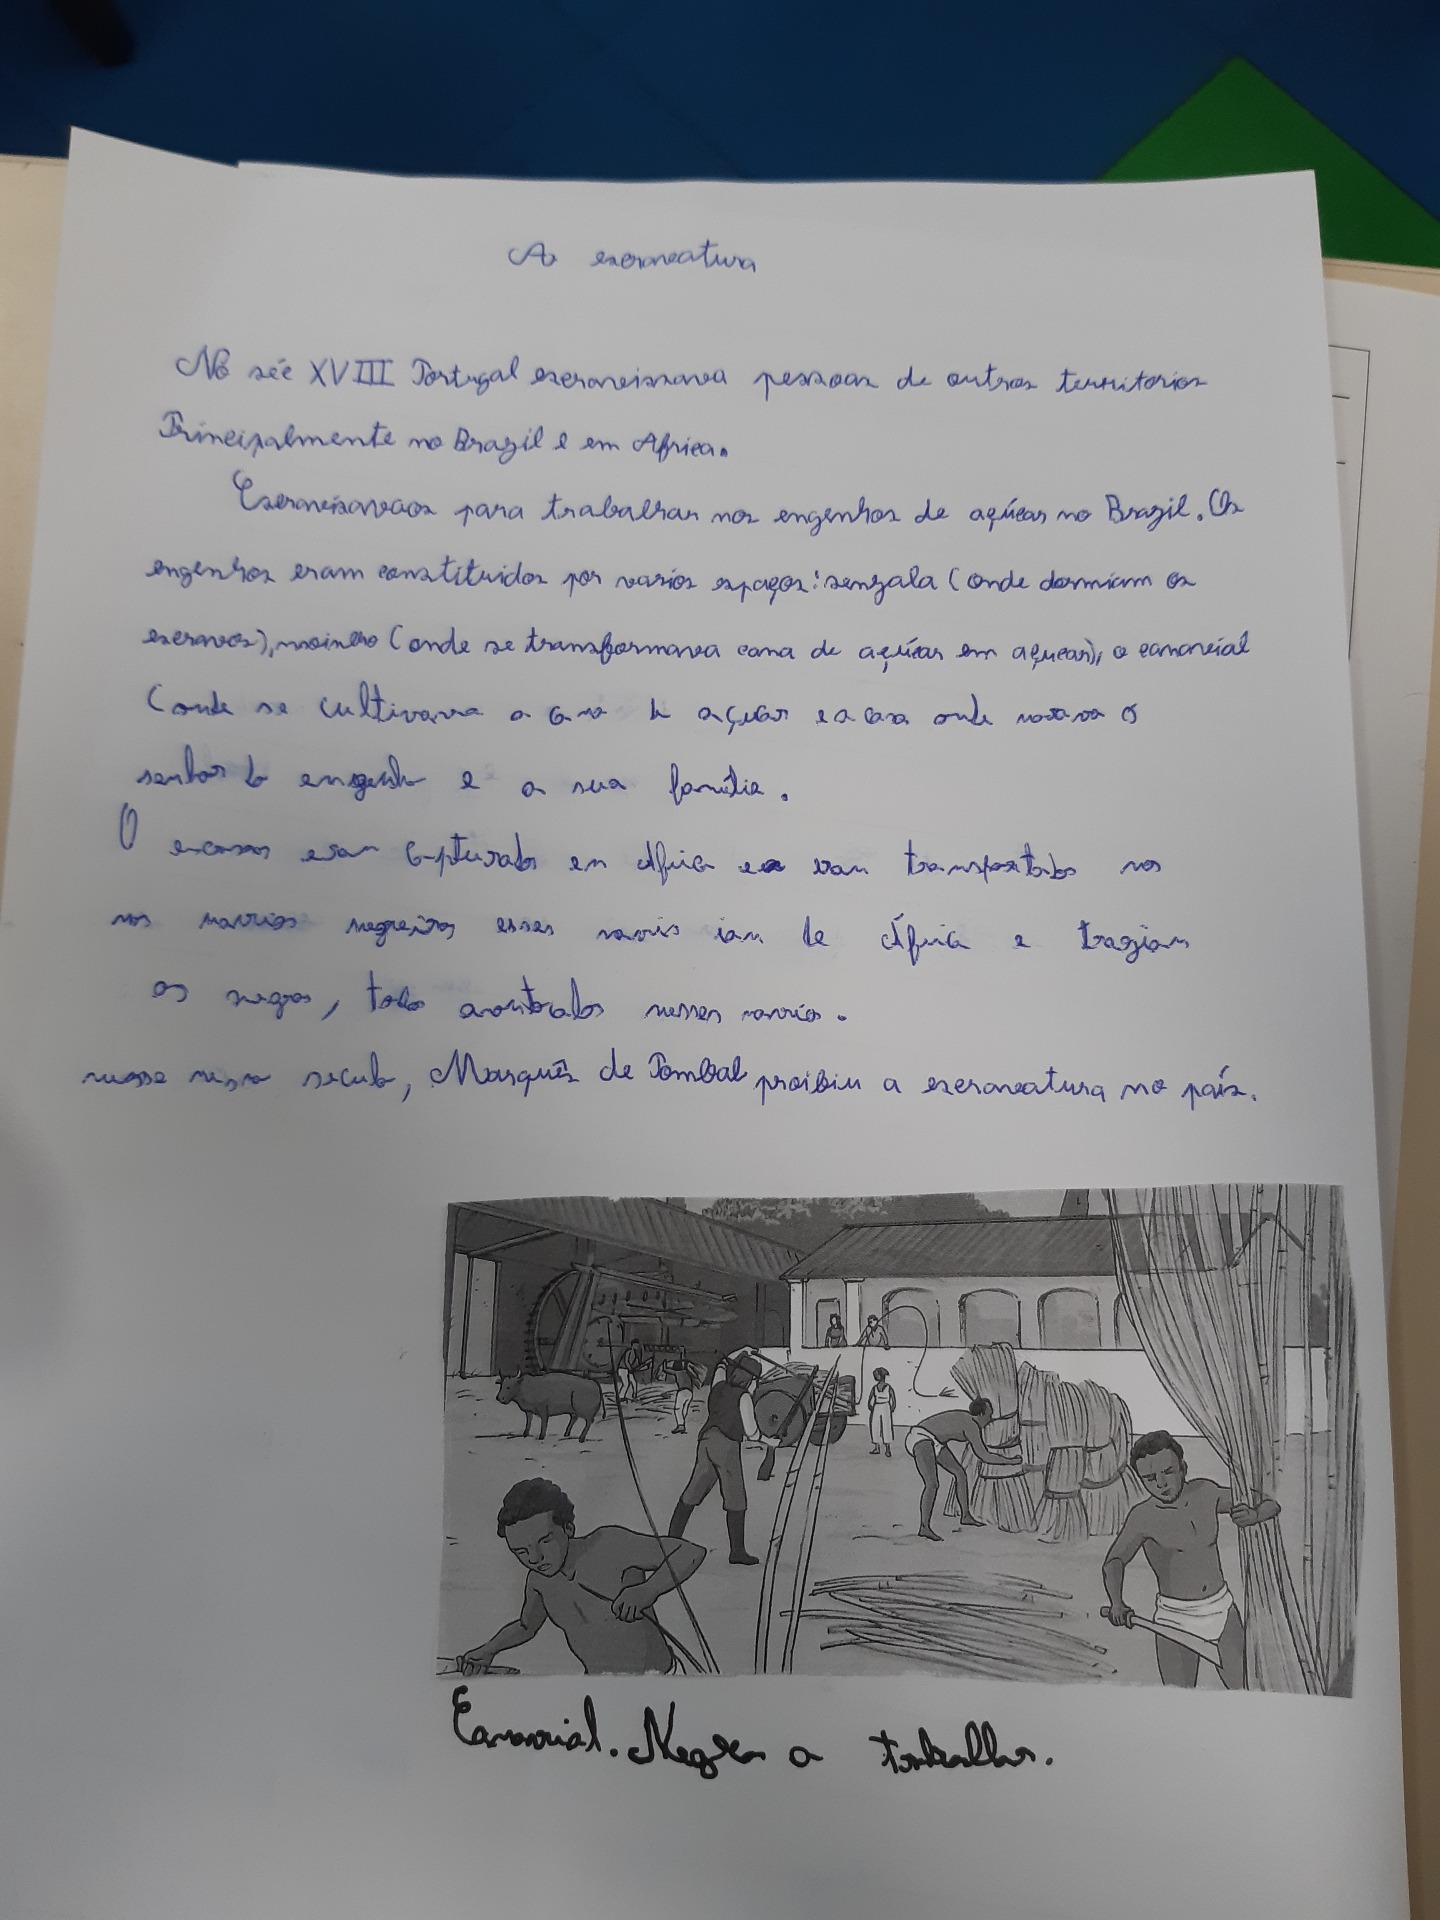 A escravatura
No séc XVIII Portugal escravissava pessoas de outros territorios
Principalmente no Brazil e em Africa.
para trabalhar nos engenhos de açúcar no Brazil. Os
engenhos eram constituidos por varios espaços: senzala (onde dormiam os
escravos), moinho (onde se transformava cana de açúcar em açucar), o canavial
(onde se cultivava a cana de açucar e a casa onde morava o
senhor do engenho e a sua família.
O escravos eram capturados em Africa e eram transportados nos
nos navios negreiros esses navios iam de África e traziam
os negros, todos amontoados nesses navios.
nesse mesmo seculo, Marquês de Pombal proibiu a escravatura no país.
Canavial. Negros a trabalhar.